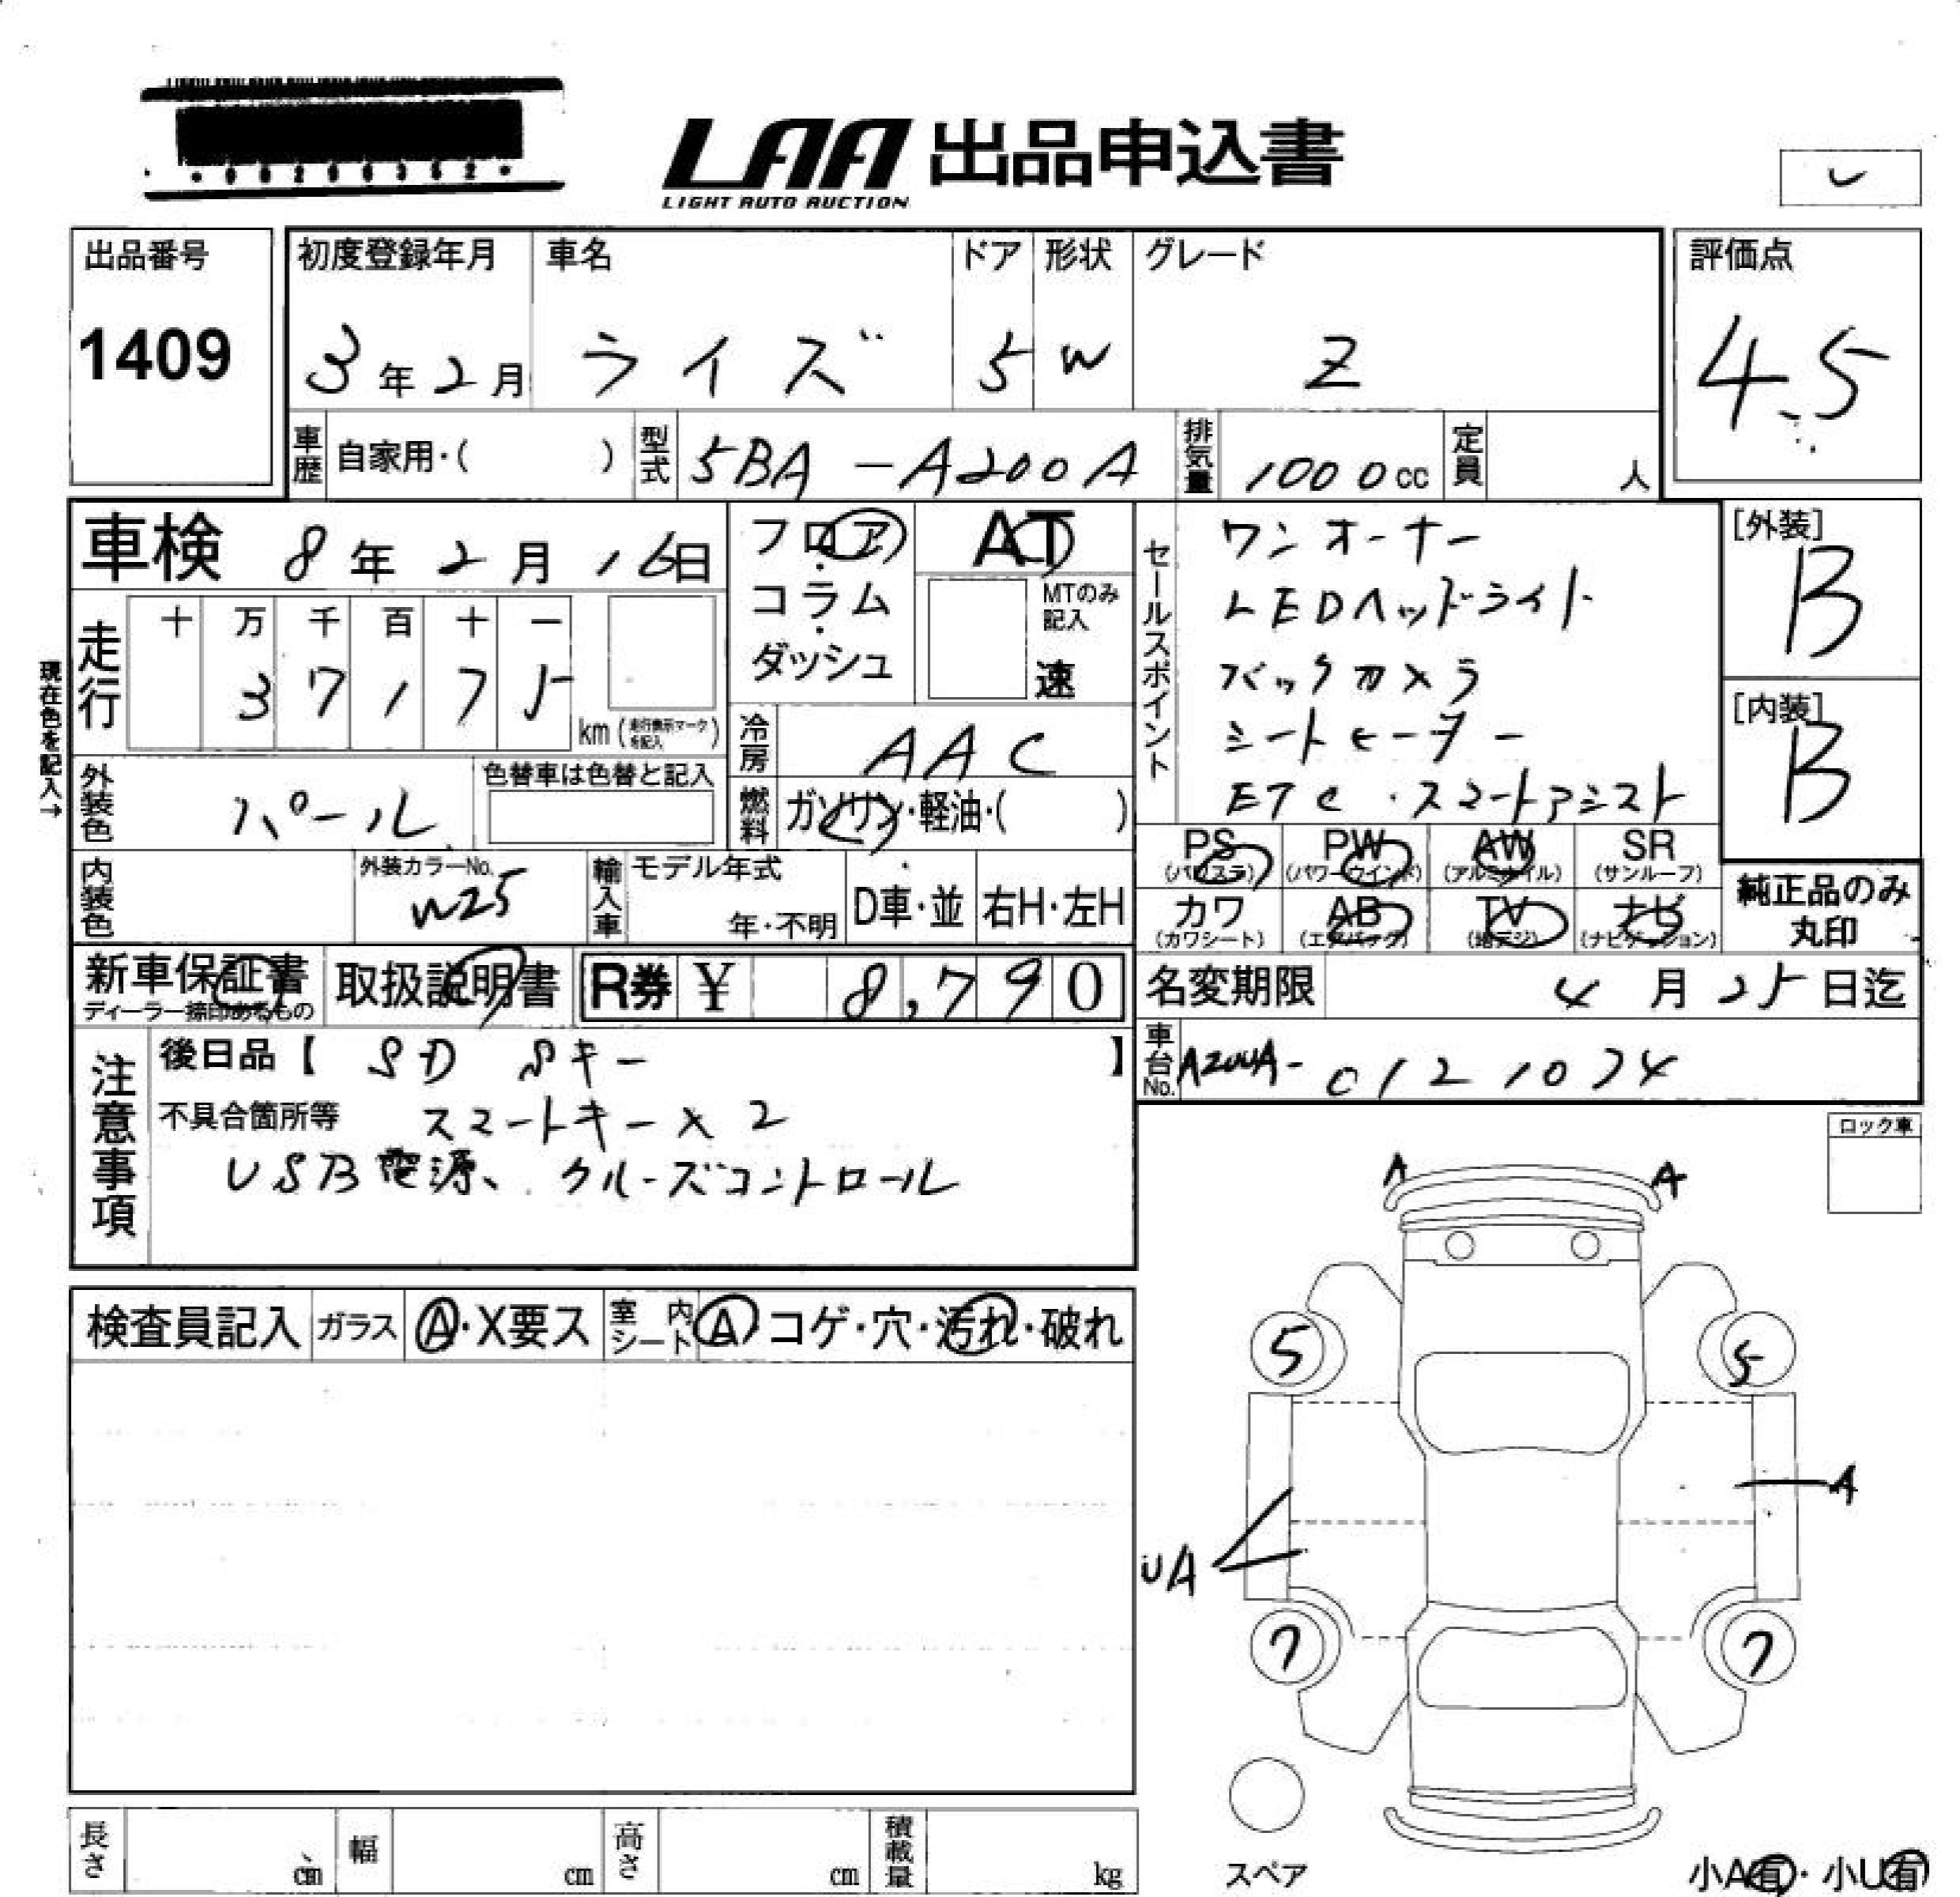 LAA 出品申込書
LIGHT AUTO AUCTION
出品番号
1409
初度登録年月
3年2月
車名
ライズ
ドア
5
形状
W
グレード
Z
評価点
4.5
車歴
自家用・(　)
型式
5BA-A200A
排気量
1000cc
定員
人
車検 8年2月16日
フロア・コラム・ダッシュ
AT
MTのみ記入
速
走行
十 万 千 百 十 一
3 7 1 7 5
km(走行表示マークを記入)
現在色を記入→
冷房
AAC
外装色
パール
色替車は色替と記入
燃料
ガソリン・軽油・(　)
内装色
外装カラーNo.
W25
輸入車
モデル年式
年・不明
D車・並
右H・左H
セールスポイント
ワンオーナー
LEDヘッドライト
バックカメラ
シートヒーター
ETC・スマートアシスト
[外装]
B
[内装]
B
PS
(パワステ)
PW
(パワーウインド)
AW
(アルミホイル)
SR
(サンルーフ)
カワ
(カワシート)
AB
(エアバック)
TV
(地デジ)
ナビ
(ナビゲーション)
純正品のみ丸印
新車保証書
ディーラー捺印あるもの
取扱説明書
R券 ¥ 8,790
名変期限
4月25日迄
車台No.
A200A-0121074
注意事項
後日品【 SD Sキー 】
不具合箇所等 スマートキー×2
USB電源、クルーズコントロール
ロック車
A A
検査員記入
ガラス
A・X要ス
室内シート
A コゲ・穴・汚れ・破れ
5 5
A
UA
7 7
スペア
小A有・小U有
長さ
cm
幅
cm
高さ
cm
積載量
kg